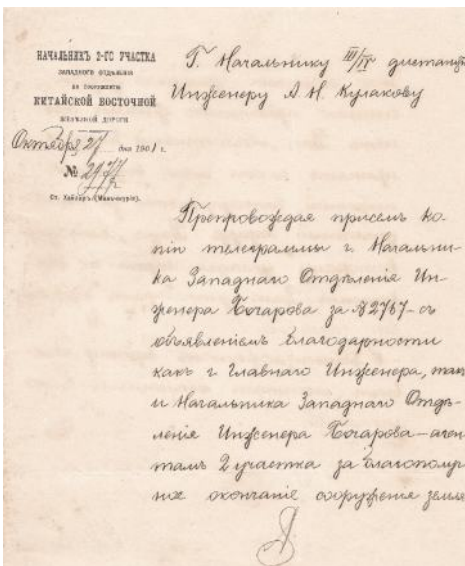 НАЧАЛЬНИКЪ 2-ГО УЧАСТКА
ЗАПАДНАГО ОТДѢЛЕНІЯ
по сооруженію
КИТАЙСКОЙ ВОСТОЧНОЙ
ЖЕЛѢЗНОЙ ДОРОГИ
Октября 27 дня 1901 г.
№ 2977
Ст. Хайларъ (Маньчжурія).
Г. Начальнику III/IV дистанціи
Инженеру А. Н. Кулакову
Препровождая присемъ ко-
пію телеграммы г. Начальни-
ка Западнаго Отдѣленія Ин-
женера Бочарова за № 2767 – съ
объявленіемъ благодарности
какъ г. Главнаго Инженера, такъ
и Начальника Западнаго Отдѣ-
ленія Инженера Бочарова – аген-
тамъ 2 участка за благополуч
ное окончаніе сооруженія земля